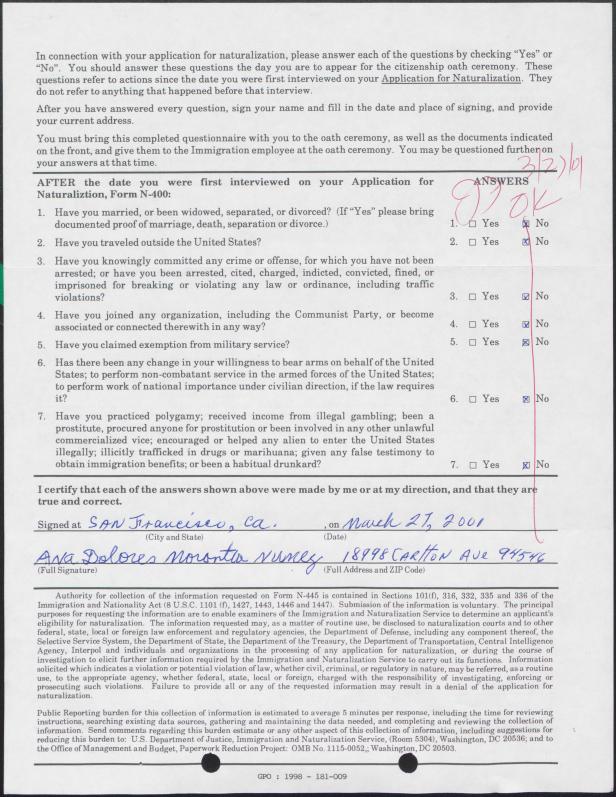 In connection with your application for naturalization, please answer each of the questions by checking "Yes" or
"No". You should answer these questions the day you are to appear for the citizenship oath ceremony. These
questions refer to actions since the date you were first interviewed on your Application for Naturalization. They
do not refer to anything that happened before that interview.
After you have answered every question, sign your name and fill in the date and place of signing, and provide
your current address.
You must bring this completed questionnaire with you to the oath ceremony, as well as the documents indicated
on the front, and give them to the Immigration employee at the oath ceremony. You may be questioned further on
your answers at that time.
AFTER the date you were first interviewed on your Application for
Naturaliztion, Form N-400:
ANSWERS
OK
1. Have you married, or been widowed, separated, or divorced? (If "Yes" please bring
documented proof of marriage, death, separation or divorce.)
1. ☐ Yes ☒ No
2. Have you traveled outside the United States?
2. ☐ Yes ☒ No
3. Have you knowingly committed any crime or offense, for which you have not been
arrested; or have you been arrested, cited, charged, indicted, convicted, fined, or
imprisoned for breaking or violating any law or ordinance, including traffic
violations?
3. ☐ Yes ☒ No
4. Have you joined any organization, including the Communist Party, or become
associated or connected therewith in any way?
4. ☐ Yes ☒ No
5. Have you claimed exemption from military service?
5. ☐ Yes ☒ No
6. Has there been any change in your willingness to bear arms on behalf of the United
States; to perform non-combatant service in the armed forces of the United States;
to perform work of national importance under civilian direction, if the law requires
it?
6. ☐ Yes ☒ No
7. Have you practiced polygamy; received income from illegal gambling; been a
prostitute, procured anyone for prostitution or been involved in any other unlawful
commercialized vice; encouraged or helped any alien to enter the United States
illegally; illicitly trafficked in drugs or marihuana; given any false testimony to
obtain immigration benefits; or been a habitual drunkard?
7. ☐ Yes ☒ No
I certify that each of the answers shown above were made by me or at my direction, and that they are
true and correct.
Signed at San Francisco, Ca. , on March 27, 2001
(City and State) (Date)
Ana Dolores 18998 Carlton Ave 94546
(Full Signature) (Full Address and ZIP Code)
Authority for collection of the information requested on Form N-445 is contained in Sections 101(f), 316, 332, 335 and 336 of the
Immigration and Nationality Act (8 U.S.C. 1101 (f), 1427, 1443, 1446 and 1447). Submission of the information is voluntary. The principal
purposes for requesting the information are to enable examiners of the Immigration and Naturalization Service to determine an applicant's
eligibility for naturalization. The information requested may, as a matter of routine use, be disclosed to naturalization courts and to other
federal, state, local or foreign law enforcement and regulatory agencies, the Department of Defense, including any component thereof, the
Selective Service System, the Department of State, the Department of the Treasury, the Department of Transportation, Central Intelligence
Agency, Interpol and individuals and organizations in the processing of any application for naturalization, or during the course of
investigation to elicit further information required by the Immigration and Naturalization Service to carry out its functions. Information
solicited which indicates a violation or potential violation of law, whether civil, criminal, or regulatory in nature, may be referred, as a routine
use, to the appropriate agency, whether federal, state, local or foreign, charged with the responsibility of investigating, enforcing or
prosecuting such violations. Failure to provide all or any of the requested information may result in a denial of the application for
naturalization.
Public Reporting burden for this collection of information is estimated to average 5 minutes per response, including the time for reviewing
instructions, searching existing data sources, gathering and maintaining the data needed, and completing and reviewing the collection of
information. Send comments regarding this burden estimate or any other aspect of this collection of information, including suggestions for
reducing this burden to: U.S. Department of Justice, Immigration and Naturalization Service, (Room 5304), Washington, DC 20536; and to
the Office of Management and Budget, Paperwork Reduction Project: OMB No. 1115-0052,; Washington, DC 20503.
GPO : 1998 - 181-009